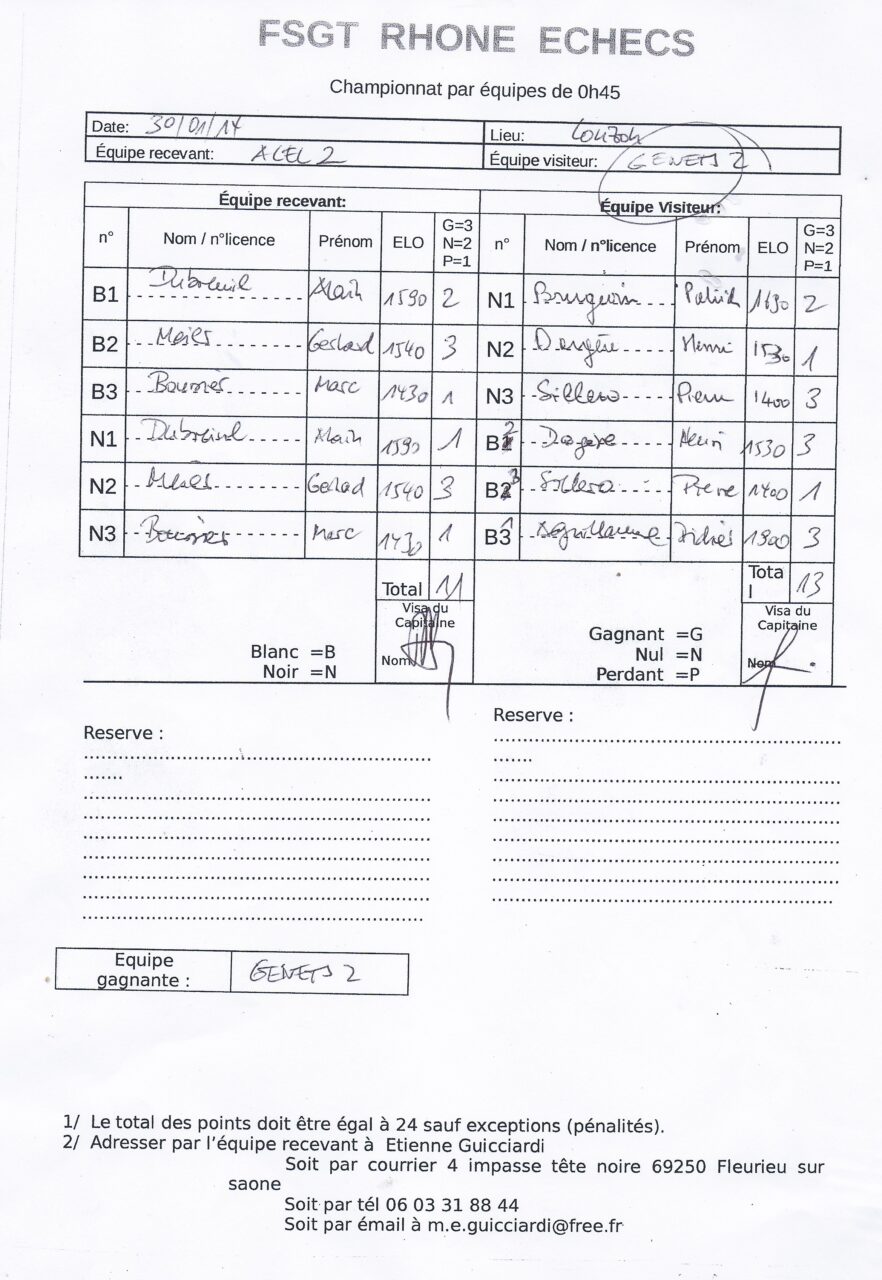 FSGT RHONE ECHECS
Championnat par équipes de 0h45
Date: 30/01/14 Lieu:
Équipe recevant: ACEL 2 Équipe visiteur: GENETS 2
Équipe recevant: Équipe Visiteur:
n° Nom / n°licence Prénom ELO G=3 N=2 P=1 n° Nom / n°licence Prénom ELO G=3 N=2 P=1
B1 Dubreuil Alain 1590 2 N1 Patrick 1690 2
B2 Gerard 1540 3 N2 Henri 1530 1
B3 Marc 1430 1 N3 Sillero Pierre 1400 3
N1 Dubreuil Alain 1590 1 B2 Henri 1530 3
N2 Gerard 1540 3 B3 Sillero Pierre 1400 1
N3 Marc 1430 1 B1 Deguillaume Didier 1900 3
Total 11 Total 13
Visa du Capitaine Visa du Capitaine
Nom Nom
Blanc =B Gagnant =G
Noir =N Nul =N
Perdant =P
Reserve : Reserve :
Equipe gagnante : GENETS 2
1/ Le total des points doit être égal à 24 sauf exceptions (pénalités).
2/ Adresser par l'équipe recevant à Etienne Guicciardi
Soit par courrier 4 impasse tête noire 69250 Fleurieu sur
saone
Soit par tél 06 03 31 88 44
Soit par émail à m.e.guicciardi@free.fr